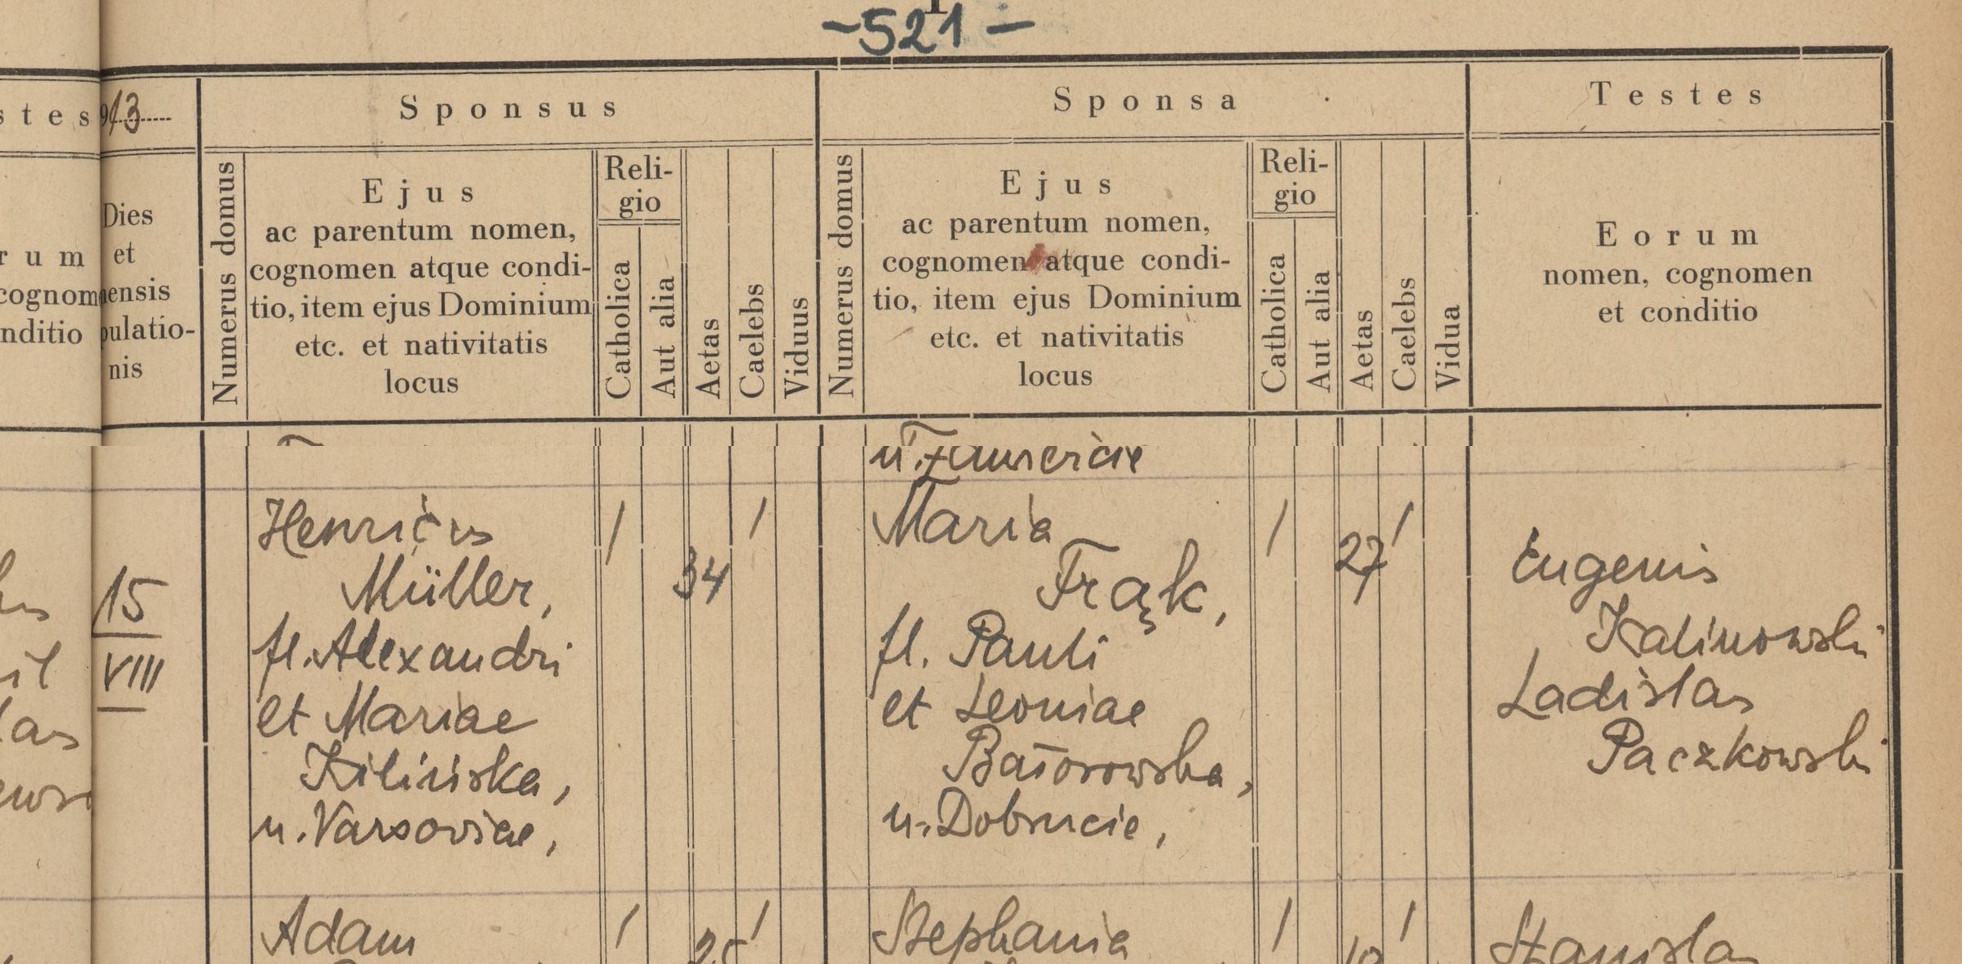 -521-
stes
913
Sponsus
Sponsa
Testes
Numerus domus
Ejus
ac parentum nomen,
cognomen atque condi-
tio, item ejus Dominium
etc. et nativitatis
locus
Reli-
gio
Catholica
Aut alia
Aetas
Caelebs
Viduus
Numerus domus
Ejus
ac parentum nomen,
cognomen atque condi-
tio, item ejus Dominium
etc. et nativitatis
locus
Reli-
gio
Catholica
Aut alia
Aetas
Caelebs
Vidua
Eorum
nomen, cognomen
et conditio
rum
cognom
nditio
Dies
et
ensis
pulatio-
nis
15
VIII
Henricus
Müller,
fl. Alexandri
et Mariae
Kilińska,
n. Varsoviae,
1
34
1
Maria
Frąk,
fl. Pauli
et Leoniae
n. Dobrucie,
1
27
1
Eugenis
Kalinowski
Ladislas
Paczkowski
Adam
1
25
1
Stephania
1
19
1
Stanislas